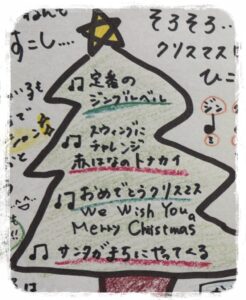 すこし...
そろそろ...
クリスマス
ひこ
♫定番の
ジングルベル
♫スウィングに
チャレンジ
赤はなのトナカイ
♫おめでとうクリスマス
We Wish You a
Merry Christmas
♫サンタがまちにやってくる